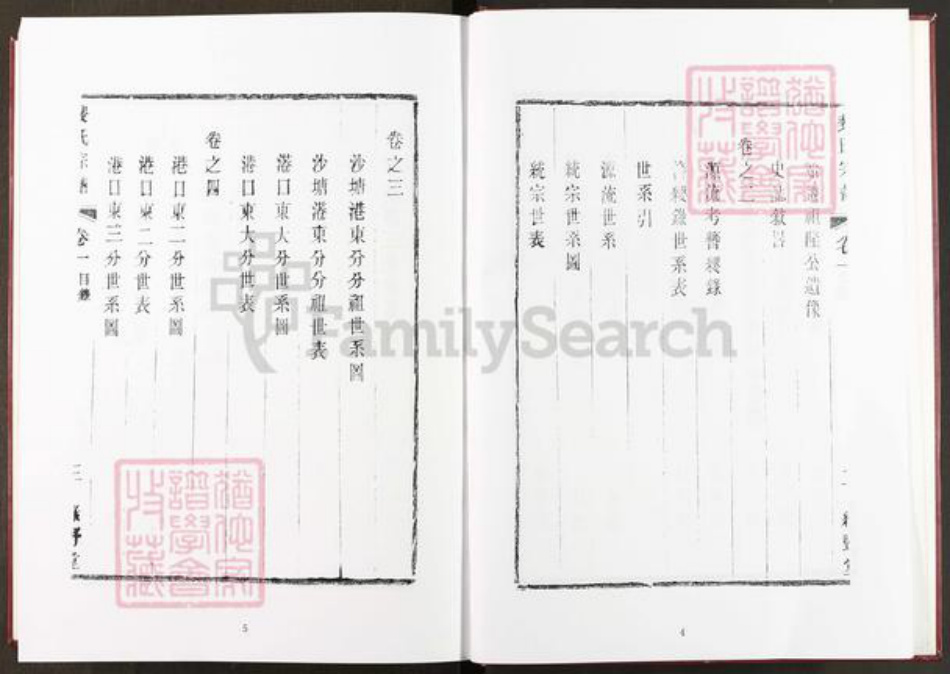 始遷祖隆公遺像
史誌敘畧
卷之二
源流考暨襍錄
襍錄世系表
世系引
源流世系
統宗世系圖
統宗世表
4
卷之三
沙塘港東分分祖世系圖
沙塘港東分分祖世表
港口東大分世系圖
港口東大分世表
卷之四
港口東二分世系圖
港口東二分世表
港口東三分世系圖
氏宗譜 卷一 目錄 三
5
FamilySearch